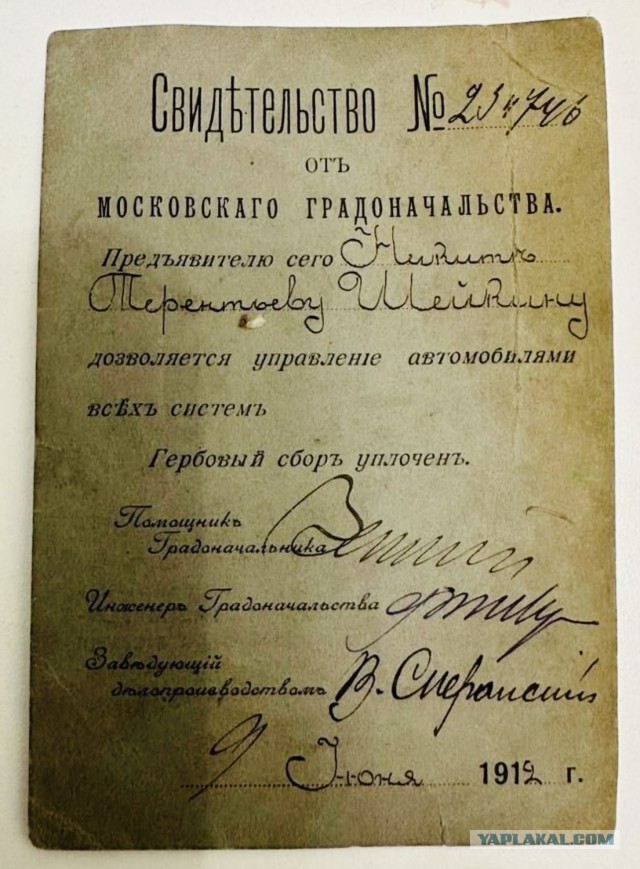 Свидѣтельство №
отъ
МОСКОВСКАГО ГРАДОНАЧАЛЬСТВА.
Предъявителю сего Никитѣ
Терентьеву Шейкину
дозволяется управленіе автомобилями
всѣхъ систем
Гербовый сборъ уплоченъ.
Помощникъ
Градоначальника
Инженеръ Градоначальства
Завѣдующій
дѣлопроизводствомъ В. Сперанскій
9 Іюня 1912 г.
YAPLAKAL.COM